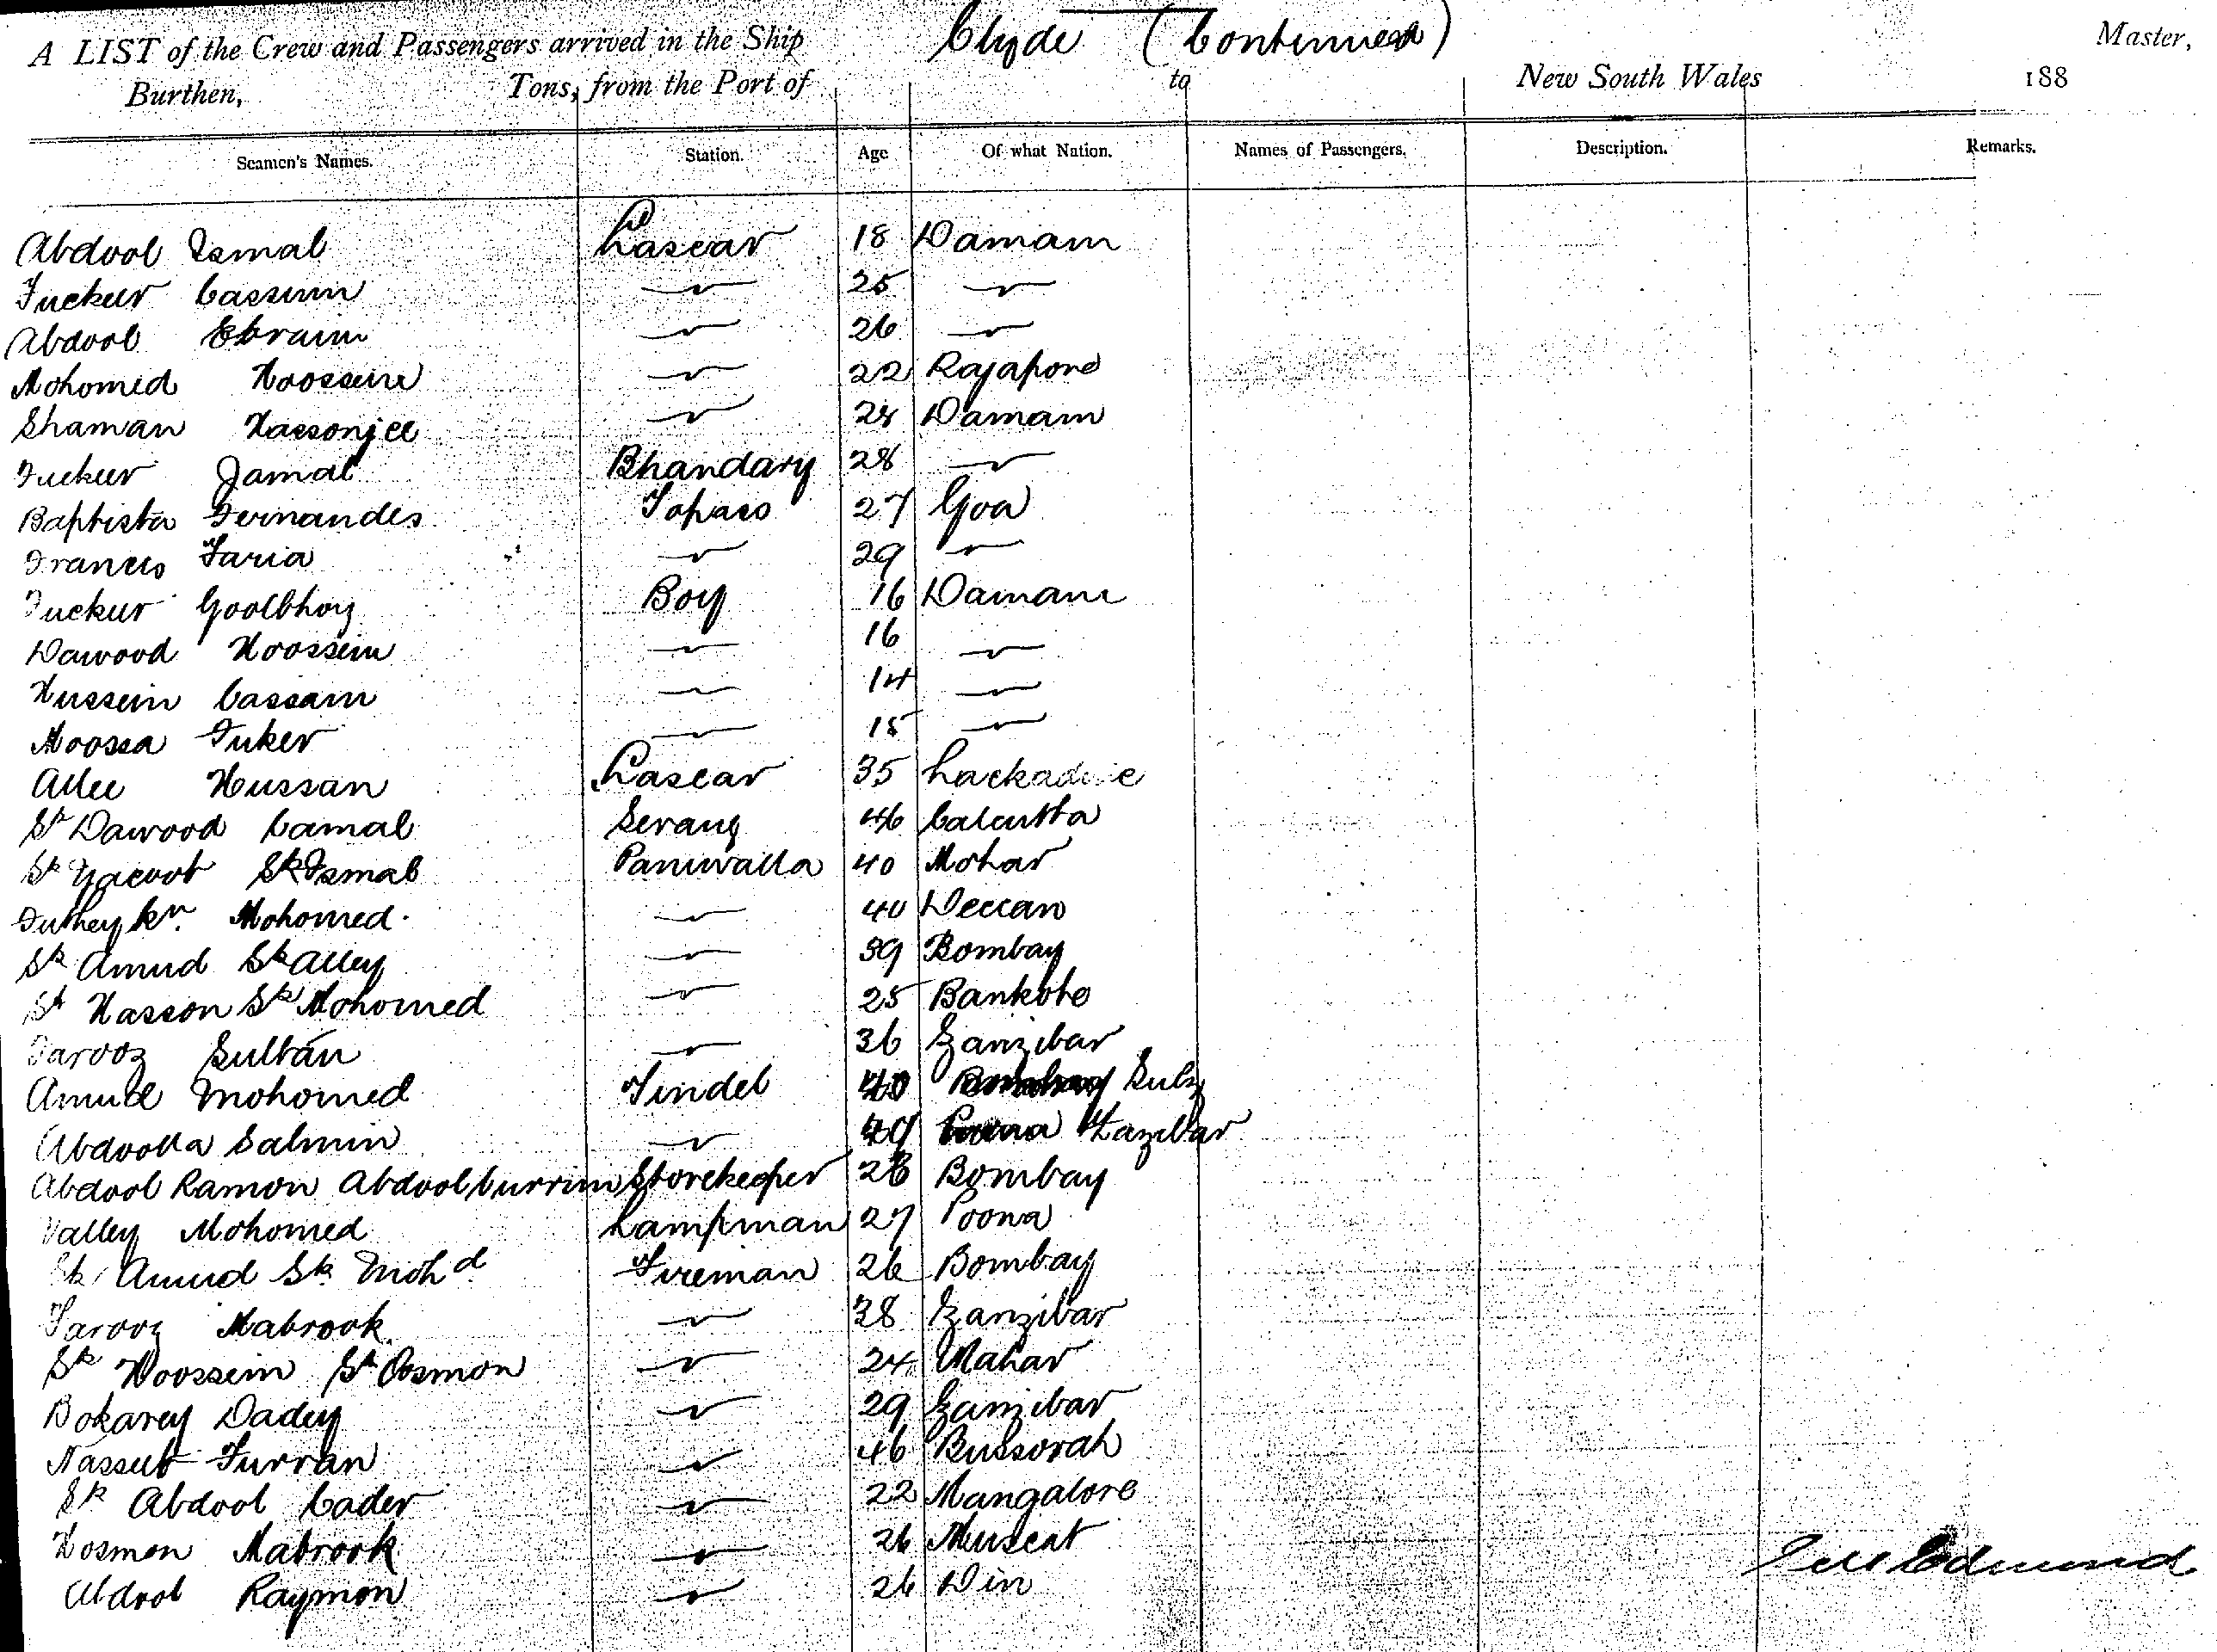 A LIST of the Crew and Passengers arrived in the Ship Clyde (Continued) Master,
Burthen, Tons, from the Port of to New South Wales 188
Seamen's Names. Station. Age Of what Nation. Names of Passengers. Description. Remarks.
Abdool Ismal Lascar 18 Damam
Fuckur Cassum 〃 25 〃
Abdool Ebraim 〃 26 〃
Mohomed Hoossein 〃 22 Rajapore
Shaman Hassonjee 〃 24 Damam
Fuckur Jamal Bhandary 28 〃
Baptista Fernandes Topass 27 Goa
Francis Faria 〃 29 〃
Fuckur Goolbhoy Boy 16 Damam
Dawood Hoossein 〃 16 〃
Hussein Cassam 〃 14 〃
Moosa Fuker 〃 15 〃
Allee Hussan Lascar 35
Sk Dawood Camal Serang 46 Calcutta
Sk Yacoob Sk Ismal Paniwalla 40 Mohar
Futhey Kn. Mohomed 〃 40 Deccan
Sk Amud Sk Alley 〃 39 Bombay
Sk Hasson Sk Mohomed 〃 25 Bankote
Farooz Sultan 〃 36 Zanzibar
Amud Mohomed Tindel 40
Abdoolla Salmin 〃 Zanzibar
Abdool Ramon Abdool Currim Storekeeper 28 Bombay
Valley Mohomed Lampman 27 Poona
Sk Amud Sk Mohd Fireman 26 Bombay
Farooz Mabrook 〃 38 Zanzibar
Sk Hoossein Sk Oosmon 〃 24 Mahar
Bokarey Dadey 〃 29 Zanzibar
Nassub Furran 〃 46 Bussorah
Sk Abdool Cader 〃 22 Mangalore
Hosmon Mabrook 〃 26 Muscat
Abdool Raymon 〃 26 Din
Edmund